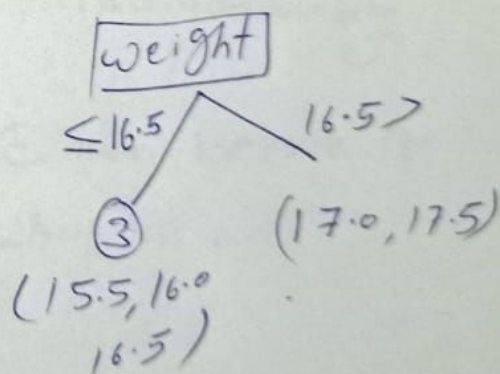 weight
≤16.5
16.5>
3
(17.0, 17.5)
(15.5, 16.0
16.5)